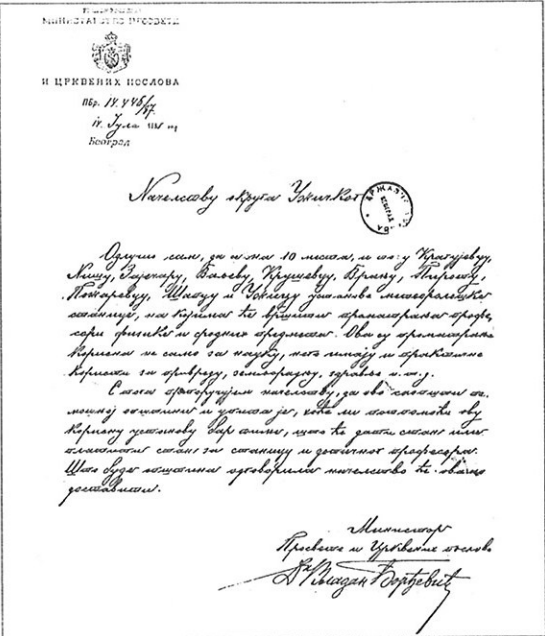 МИНИСТАРСТВО ПРОСВЕТЕ
И ЦРКВЕНИХ ПОСЛОВА
ПБр.
Јула
Београд
Начелству округа Ужичког
Одлучио сам, да се на 10 места, и то: у Крагујевцу,
Нишу, Зајечару, Ваљеву, Крушевцу, Пироту,
Пожаревцу, Шапцу и Ужицу установе метеоролошке
станице, на којима ће вршити проматрања профе-
сори физике и сродних предмета. Ова су проматрања
корисна не само за науку, него имају и практичне
користи за привреду, земљорадњу, здравље и т. д.
С тога препоручујем начелству, да ово саопшти та-
мошњој општини и упита је, хоће ли потпомоћи ову
корисну установу бар тиме, што ће дати стан или
плаћати стан за станицу и дотичног професора.
Што буде општина одговорила начелство ће овамо
доставити.
Министар
Просвете и Црквених послова
Др Владан Ђорђевић